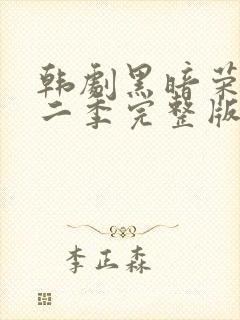 韩剧黑暗荣
二季完整版
李正森